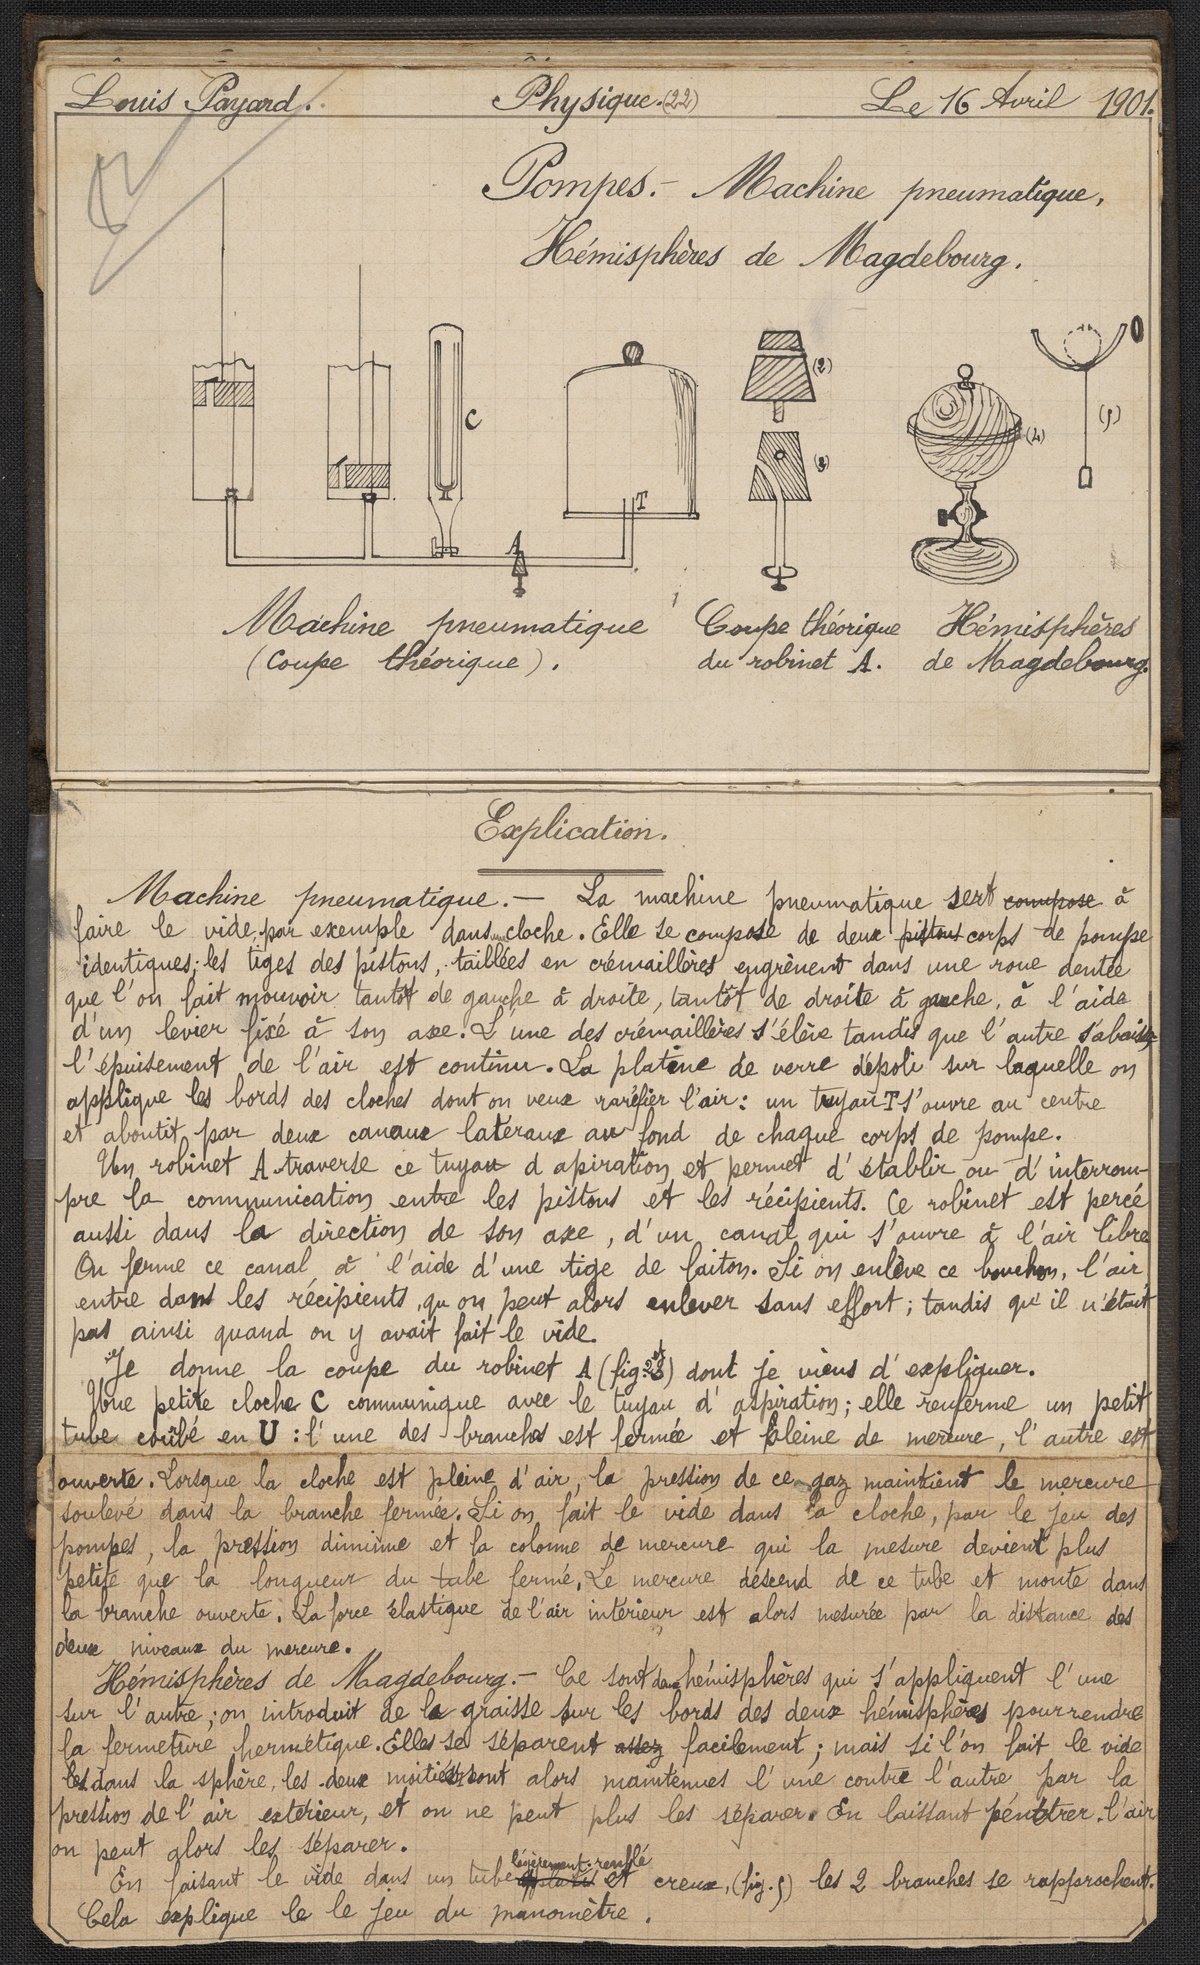 Louis Payard. Physique. (22) Le 16 Avril 1901.
Pompes. - Machine pneumatique,
Hémisphères de Magdebourg.
C
T
A
(2)
(3)
(4)
(5)
Machine pneumatique
(Coupe théorique).
Coupe théorique
du robinet A.
Hémisphères
de Magdebourg.
Explication.
Machine pneumatique. - La machine pneumatique sert compose à
faire le vide, par exemple dans une cloche. Elle se compose de deux pistons corps de pompe
identiques; les tiges des pistons, taillées en crémaillères engrènent dans une roue dentée
que l'on fait mouvoir tantôt de gauche à droite, tantôt de droite à gauche, à l'aide
d'un levier fixé à son axe. L'une des crémaillères s'élève tandis que l'autre s'abaisse
l'épuisement de l'air est continu. La platine de verre dépoli sur laquelle on
applique les bords des cloches dont on veux raréfier l'air: un tuyau T s'ouvre au centre
et aboutit par deux canaux latéraux au fond de chaque corps de pompe.
Un robinet A traverse ce tuyau d'apiration et permet d'établir ou d'interrom-
pre la communication entre les pistons et les récipients. Ce robinet est percé
aussi dans la direction de son axe, d'un canal qui s'ouvre à l'air libre
On ferme ce canal à l'aide d'une tige de laiton. Si on enlève ce bouchon, l'air
entre dans les récipients, qu'on peut alors enlever sans effort; tandis qu'il n'était
pas ainsi quand on y avait fait le vide.
Je donne la coupe du robinet A (fig. 2 et 3) dont je viens d'expliquer.
Une petite cloche C communique avec le tuyau d'aspiration; elle renferme un petit
tube coûbé en U: l'une des branches est fermée et pleine de mercure, l'autre est
ouverte. Lorsque la cloche est pleine d'air, la pression de ce gaz maintient le mercure
soulevé dans la branche fermée. Si on fait le vide dans la cloche, par le jeu des
pompes, la pression diminue et la colonne de mercure qui la mesure devient plus
petite que la longueur du tube fermé. Le mercure descend de ce tube et monte dans
la branche ouverte. La force élastique de l'air intérieur est alors mesurée par la distance des
deux niveaux du mercure.
Hémisphères de Magdebourg. - Ce sont deux hémisphères qui s'appliquent l'une
sur l'autre; on introduit de la graisse sur les bords des deux hémisphères pour rendre
la fermeture hermétique. Elles se séparent assez facilement; mais si l'on fait le vide
dans la sphère, les deux moitiés sont alors maintenues l'une contre l'autre par la
pression de l'air extérieur, et on ne peut plus les séparer. En laissant pénétrer l'air
on peut alors les séparer.
En faisant le vide dans un tube légèrement renflé et creux, (fig. 5) les 2 branches se rapprochent.
Cela explique le le jeu du manomètre.